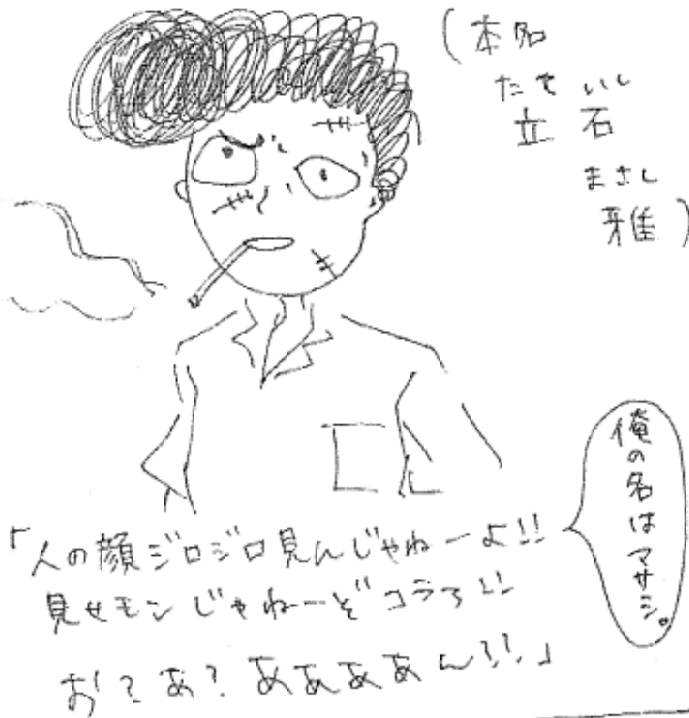 (本名
たていし
立石
まさし
雅)
俺の名はマサシ。
「人の顔ジロジロ見んじゃねーよ!!
見せモンじゃねーぞコラァ!!
お?あ?ああああん!!」